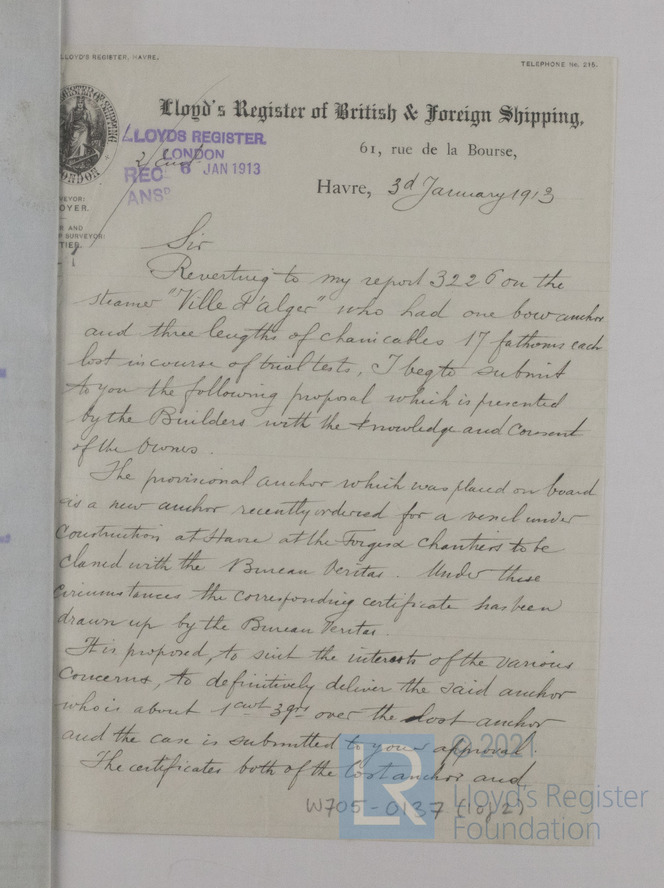 LLOYD'S REGISTER, HAVRE.
TELEPHONE No. 215.
Lloyd's Register of British & Foreign Shipping,
61, rue de la Bourse,
LLOYDS REGISTER.
LONDON
REC. 6 JAN 1913
ANSD
LONDON
Havre, 3d January 1913
VEYOR:
OYER.
R AND
P SURVEYOR:
TIER.
Sir
Reverting to my report 3226 on the
steamer "Ville d'alger" who had one bow anchor
and three lengths of chain cables 17 fathoms each
lost in course of trial tests, I beg to submit
to you the following proposal which is presented
by the Builders with the knowledge and consent
of the Owners.
The provisional anchor which was placed on board
is a new anchor recently ordered for a vessel under
Construction at Havre at the Forges & Chantiers to be
classed with the Bureau Veritas. Under these
circumstances the corresponding certificate has been
drawn up by the Bureau Veritas.
It is proposed, to suit the interests of the various
Concerns, to definitively deliver the said anchor
who is about 1 cwt 3 qrs over the lost anchor
and the case is submitted to your approval.
The certificates both of the lost anchor and
W705-0137 (1of2)
© 2021
LR
Lloyd's Register
Foundation